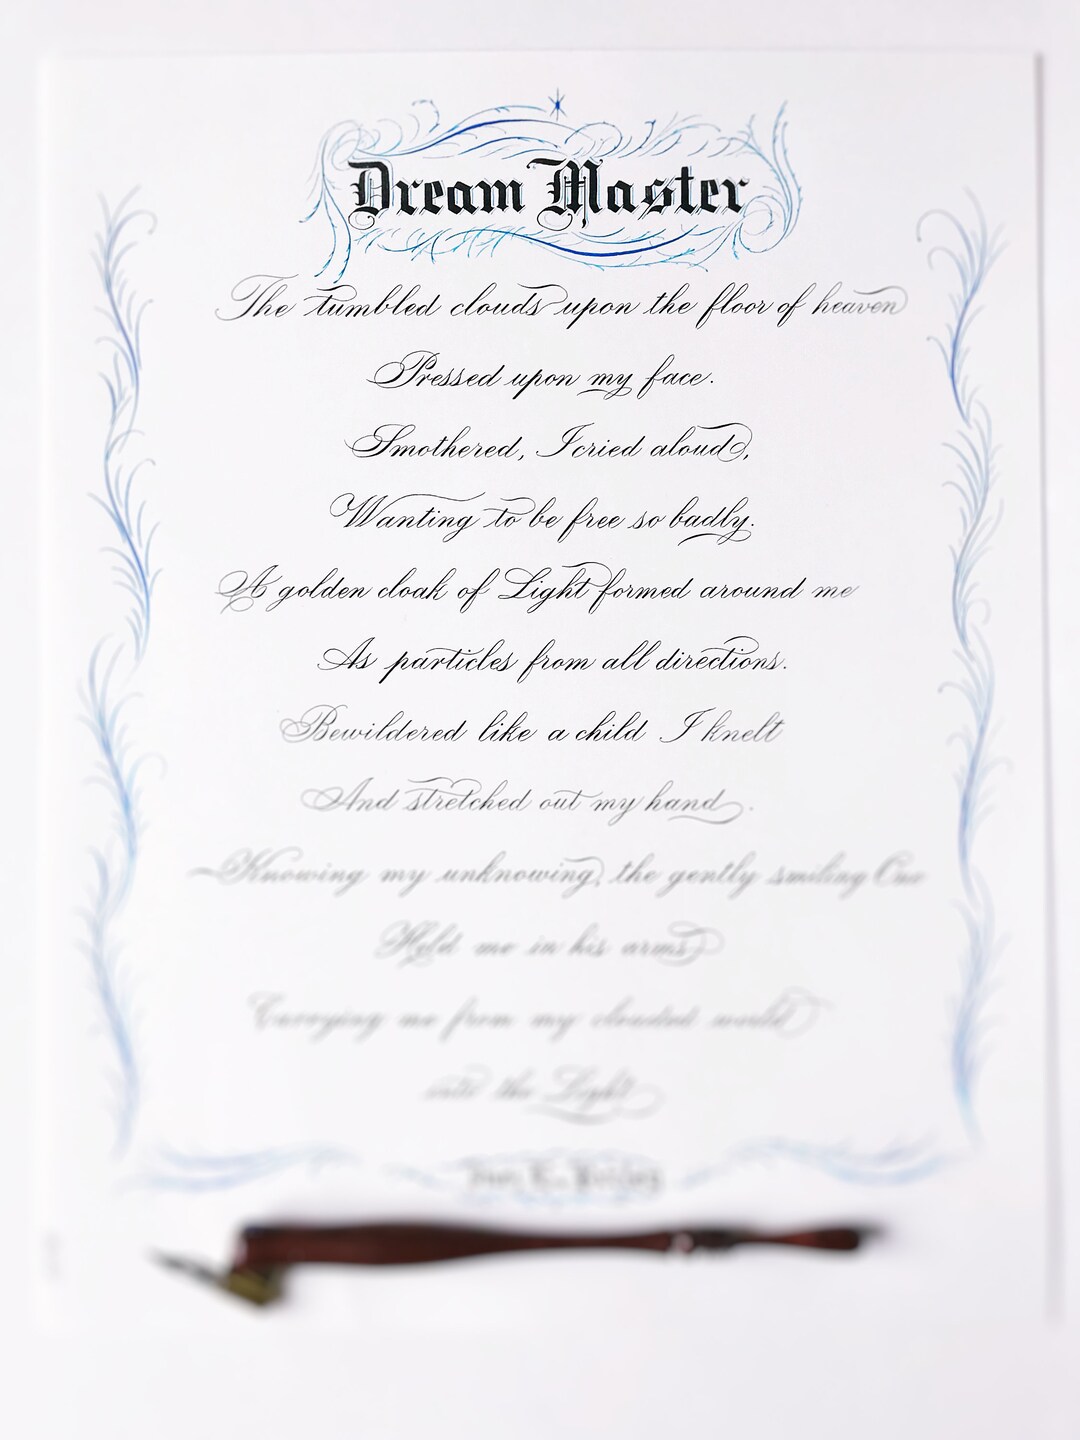 Dream Master
The tumbled clouds upon the floor of heaven
Pressed upon my face.
Smothered, I cried aloud,
Wanting to be free so badly.
A golden cloak of Light formed around me
As particles from all directions.
Bewildered like a child I knelt
And stretched out my hand.
Knowing my unknowing, the gently smiling One
Held me in his arms
Carrying me from my clouded world
into the Light